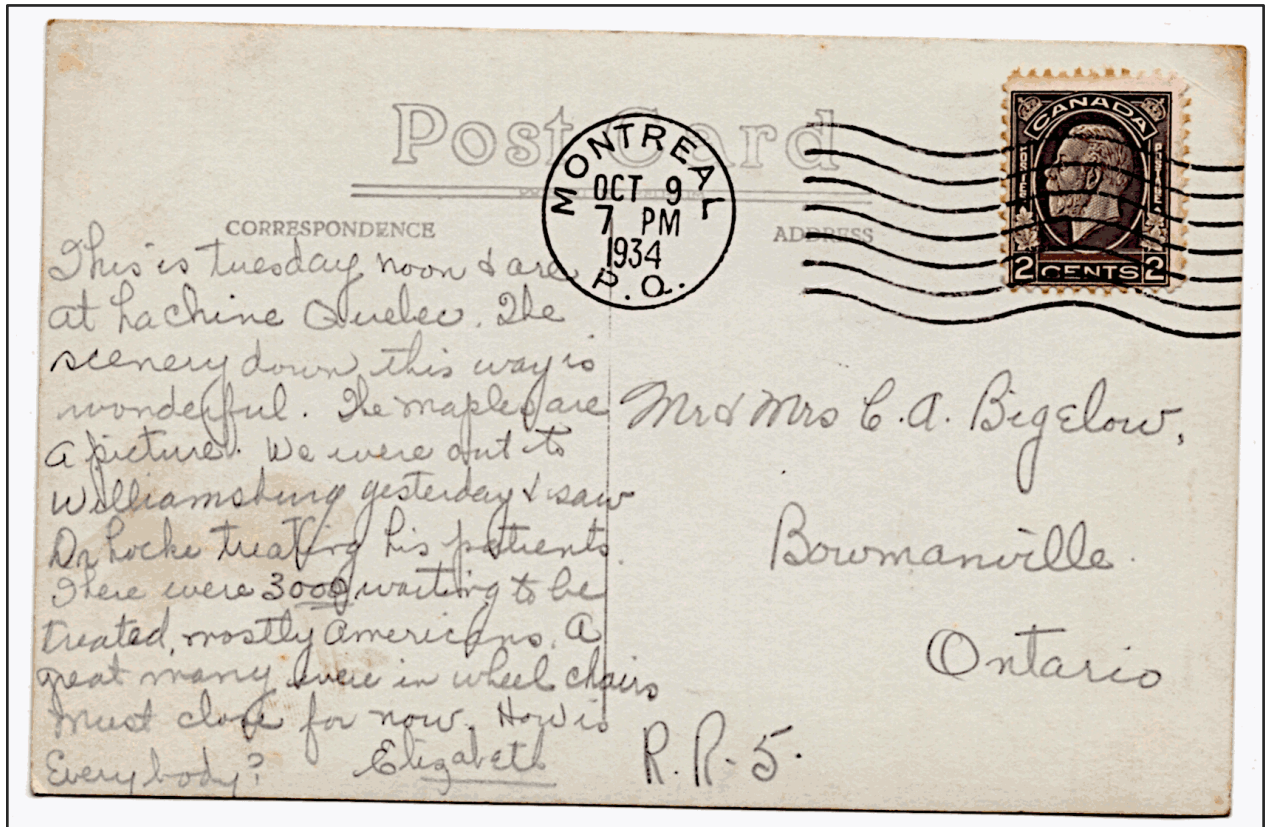 Post Card
CORRESPONDENCE
ADDRESS
MONTREAL
OCT 9
7 PM
1934
P.Q.
CANADA
POSTES
POSTAGE
2 CENTS 2
This is tuesday noon & are
at Lachine Quebec. The
scenery down this way is
wonderful. The maples are
a picture. We were out to
Williamsburg yesterday & saw
Dr Locke treating his patients.
There were 3000 waiting to be
treated, mostly Americans. A
great many were in wheel chairs
Must close for now. How is
Everybody? Elizabeth
Mr & Mrs C. A. Bigelow,
Bowmanville
Ontario
R.R. 5.